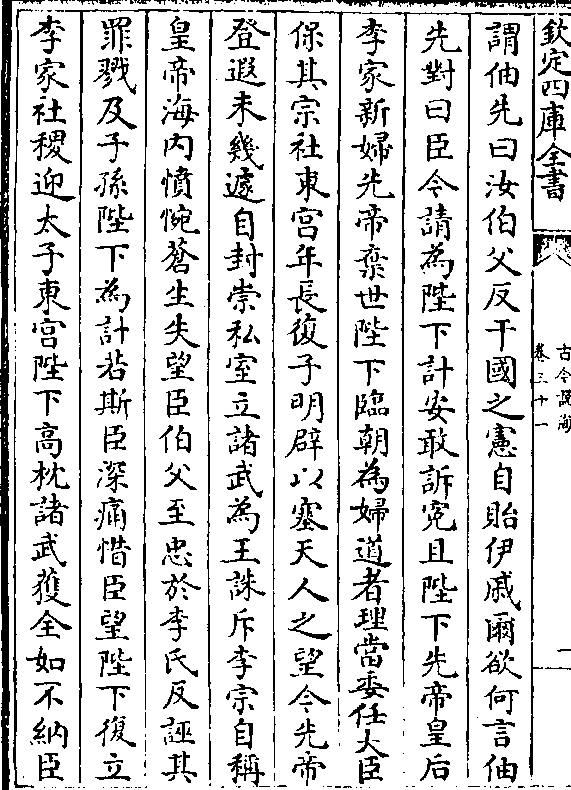 欽定四庫全書
古今說海
卷三十一
一
謂伷先曰汝伯父反干國之憲自貽伊戚爾欲何言伷
先對曰臣今請為陛下計安敢訴寃且陛下先帝皇后
李家新婦先帝棄世陛下臨朝為婦道者理當委任大臣
保其宗社東宮年長復子明辟以塞天人之望今先帝
登遐未幾遽自封崇私室立諸武為王誅斥李宗自稱
皇帝海内憤惋蒼生失望臣伯父至忠於李氏反誣其
罪戮及子孫陛下為計若斯臣深痛惜臣望陛下復立
李家社稷迎太子東宮陛下高枕諸武獲全如不納臣